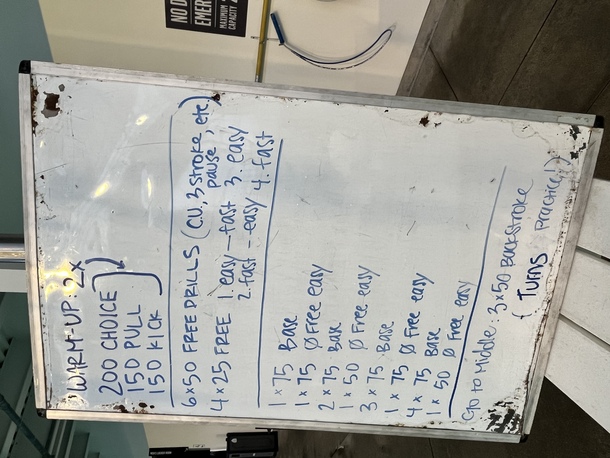 NO D
EMER
MAXIMUM
CAPACITY
WARM-UP: 2X
200 CHOICE
150 PULL
150 KICK
6x50 FREE DRILLS (C.U, 3 stroke
pause, etc)
4x25 FREE 1. easy - fast 3. easy
2. fast - easy 4. fast
1 x 75 Base
1 x 75 Ø Free easy
2 x 75 Base
1 x 50 Ø Free easy
3 x 75 Base
1 x 75 Ø Free easy
4 x 75 Base
1 x 50 Ø Free easy
Go to Middle: 3x50 Backstroke
(TURNS practice!)